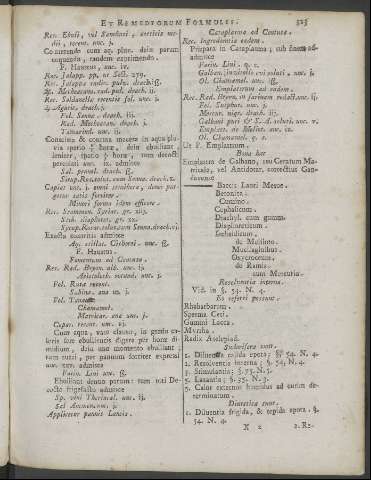 ET REMEDIORUM FORMULES. 325
Rec. Ebuli, vel Sambuci, corticis me-
dii, recent. unc. j.
Conterendo cum aq. pluv. dein param
coquendo, tandem exprimendo.
F. Haustus, unc. iv.
Rec. Jalapp. pp. ut Sect. 279.
Rec. Jalappæ radic. pulv. drach. iß.
Mechoacan. rad. pul. drach. ij.
Rec. Soldanellæ recentis fol. unc. j.
Agaric. drach. j.
Fol. Sennæ. drach. iij.
Rad. Mechoacan. drach. j.
Tamarind. unc. ij.
Concisim & contusim macera in aqua plu-
via spatio ½ hor. dein ebulliant,
leniter, spatio ½ hor. tum decocti
percolati unc. ix. admisce
Sal. prunel. drach. ß.
Sirup. Ros. solut. cum Senna. drach. x.
Capiat unc. j. omni semihora, donec pur-
gatus satis fuerit.
Minori forma idem efficere.
Rec. Scammon. Syriac. gr. xij.
Stib. diaphoret. gr. xx.
Syrup. Rosar. solut. cum Senna. drach. vj.
Exacte contritis admisce
Aq. stillat. Cichorei. unc. ß.
F. Haustus.
Fomentum ad Contusa.
Rec. Rad. Bryon. alb. unc. ij.
Aristoloch. rotund. unc. j.
Fol. Rutæ recent.
Sabina. ana m. j.
Fol. Tanacet.
Chamæmel.
Matricar. ana unc. j.
Capar. recent. unc. ij.
Cum aqua, vase clauso, in gradu ca-
loris fere ebullientis digere per horæ di-
midium, dein uno momento ebulliant;
tum rutæ, per pannum fortiter expressi
unc. xxx. admisce
Farin. Lini unc. ß.
Ebulliant denuo parum: tum toti De-
cocto frigefacto admisce
Sp. vini Therical. unc. ij.
Sal Ammon. unc. j.
Applicetur pannis Laneis.
Cataplasma ad Contusa.
Rec. Ingredientia eadem.
Præpara in Cataplasma; sub finem ad-
admisce
Farin. Lini. q. s.
Galban. in vitello ovi soluti, unc. j.
Ol. Chamæmel. unc. iß.
Emplastrum ad eadem.
Rec. Rad. Bryon. in farinam redact. unc. ij.
Fol. Sulphur. unc. j.
Mercur. nigr. drach. iij.
Galbani puri & S. A. soluti. unc. v.
Emplast. de Melilot. unc. ix.
Ol. Chamæmel. q. s.
Ut F. Emplastrum.
Bona huc
Emplastra de Galbano, seu Ceratum Ma-
tricale, vel Antidotar, correctius Gan-
davensium
Baccis Lauri Mesue.
Betonica.
Cumino.
Cephalicum.
Diachyl. cum gummi.
Diaphoreticum.
Ischiadicum.
de Meliloto.
Mucilaginibus.
Oxycroceum.
de Ranis.
cum Mercurio.
Resolventia interna.
Vid. in §. 54. N. 4.
Eo referri possunt.
Rhabarbarum.
Sperma Ceti.
Gummi Lacca.
Myrrha.
Radix Asclepiad.
Sudorifera sunt.
1. Diluentia tepida epota; §§ 54. N. 4.
2. Resolventia interna; §. 54. N. 4.
3. Stimulantia; §. 75. N. 5.
4. Laxantia; §. 35. N. 3.
5. Calor externus humidus ad cutim de-
terminatum.
Diuretica sunt.
1. Diluentia frigida, & tepida epota. §.
54. N. 4.
X 2 2. Re-